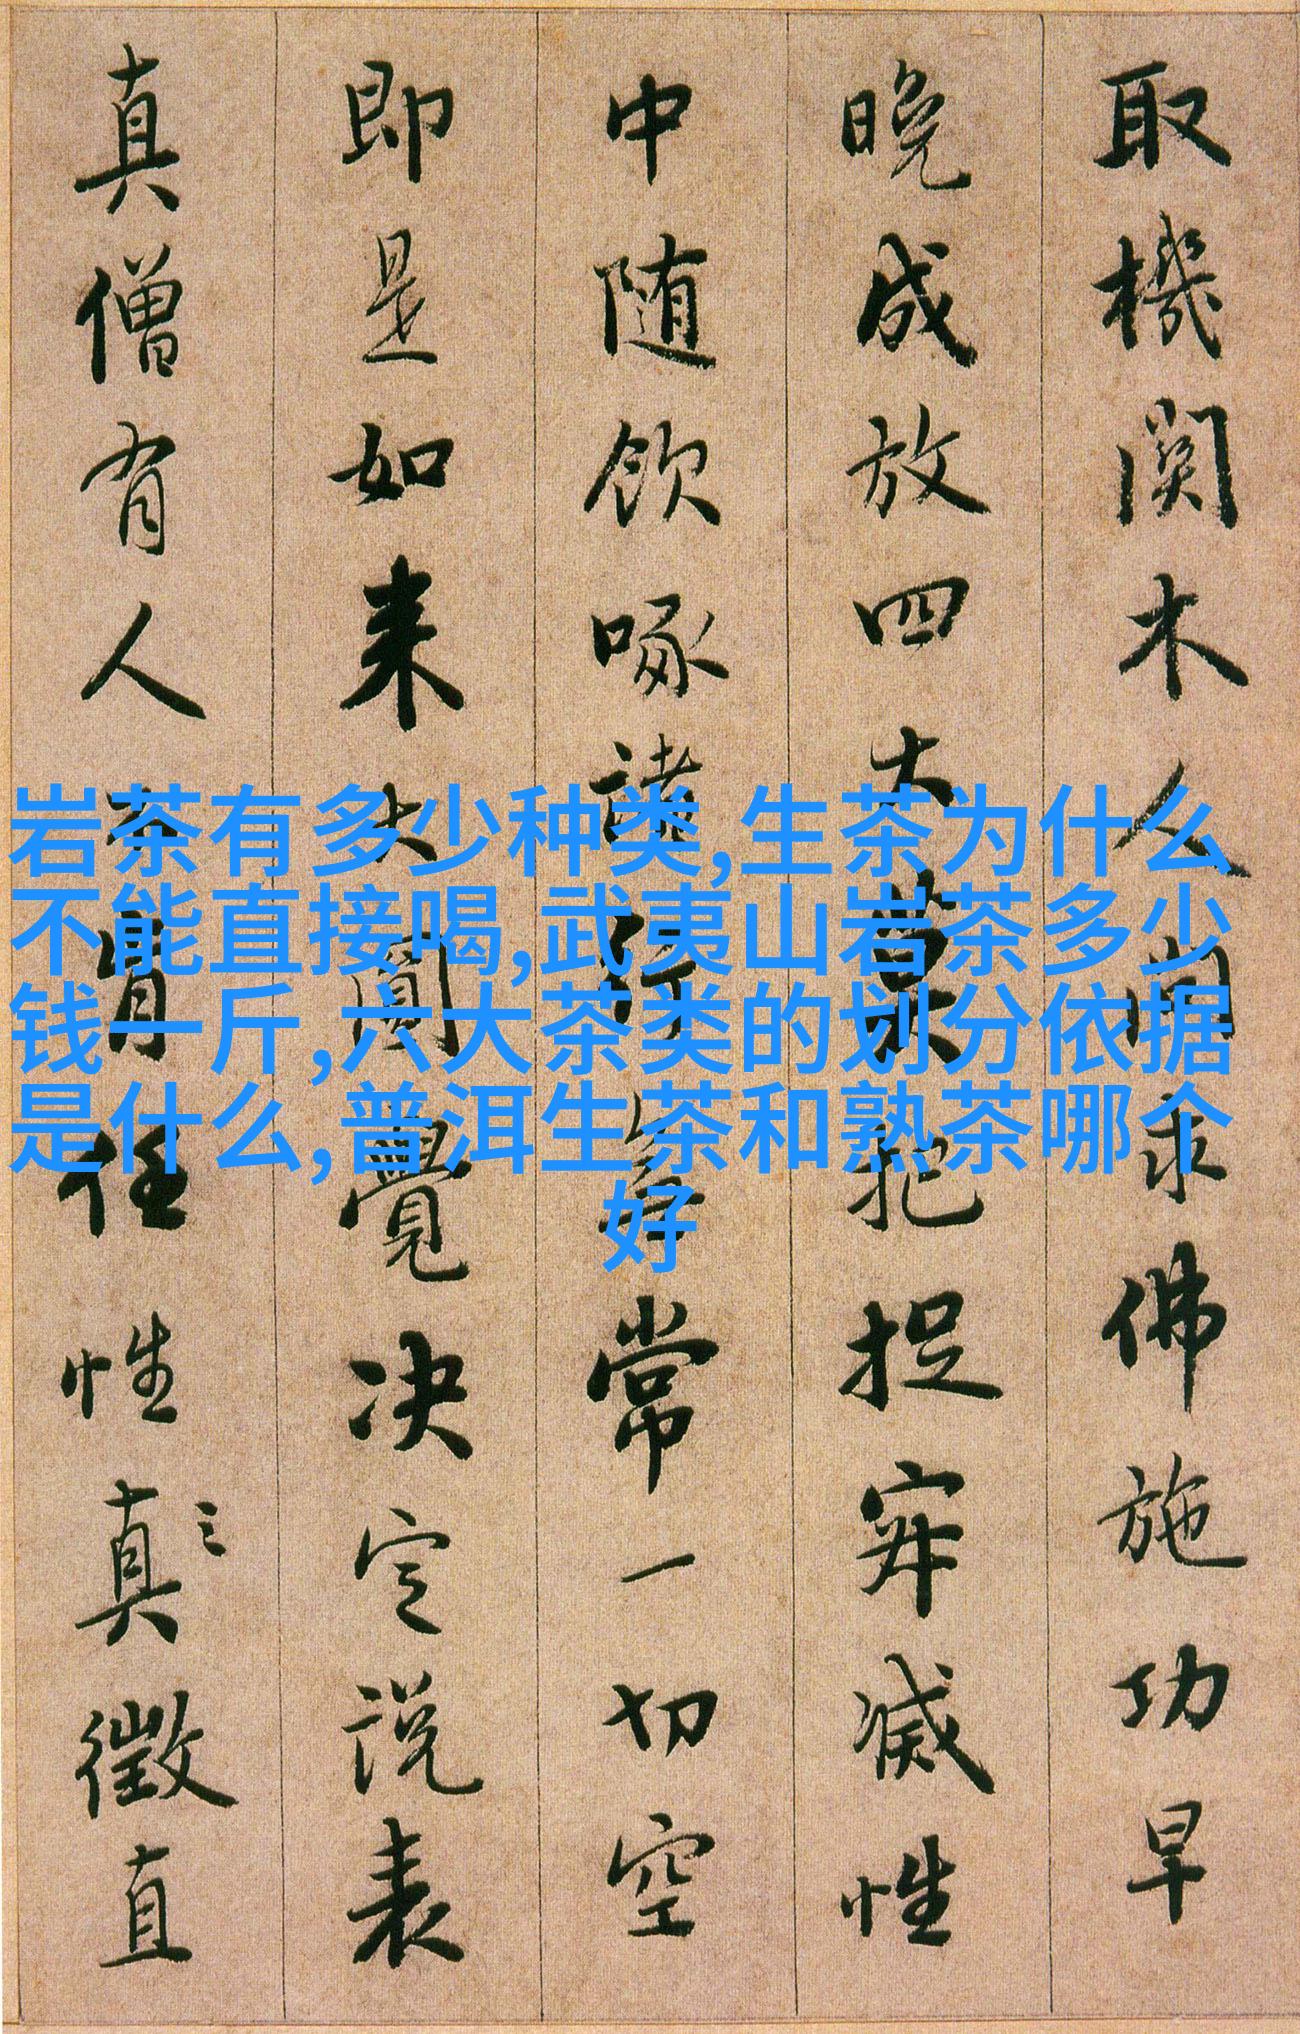 取機関木人問求佛施功早
晚成放四大莫把捉寂滅性
中随飲啄諸行無常一切空
即是如来大圓覺决定説表
真僧有人不肯任性真徵直
岩茶有多少种类,生茶为什么
不能直接喝,武夷山岩茶多少
钱一斤,六大茶类的划分依据
是什么,普洱生茶和熟茶哪个
好